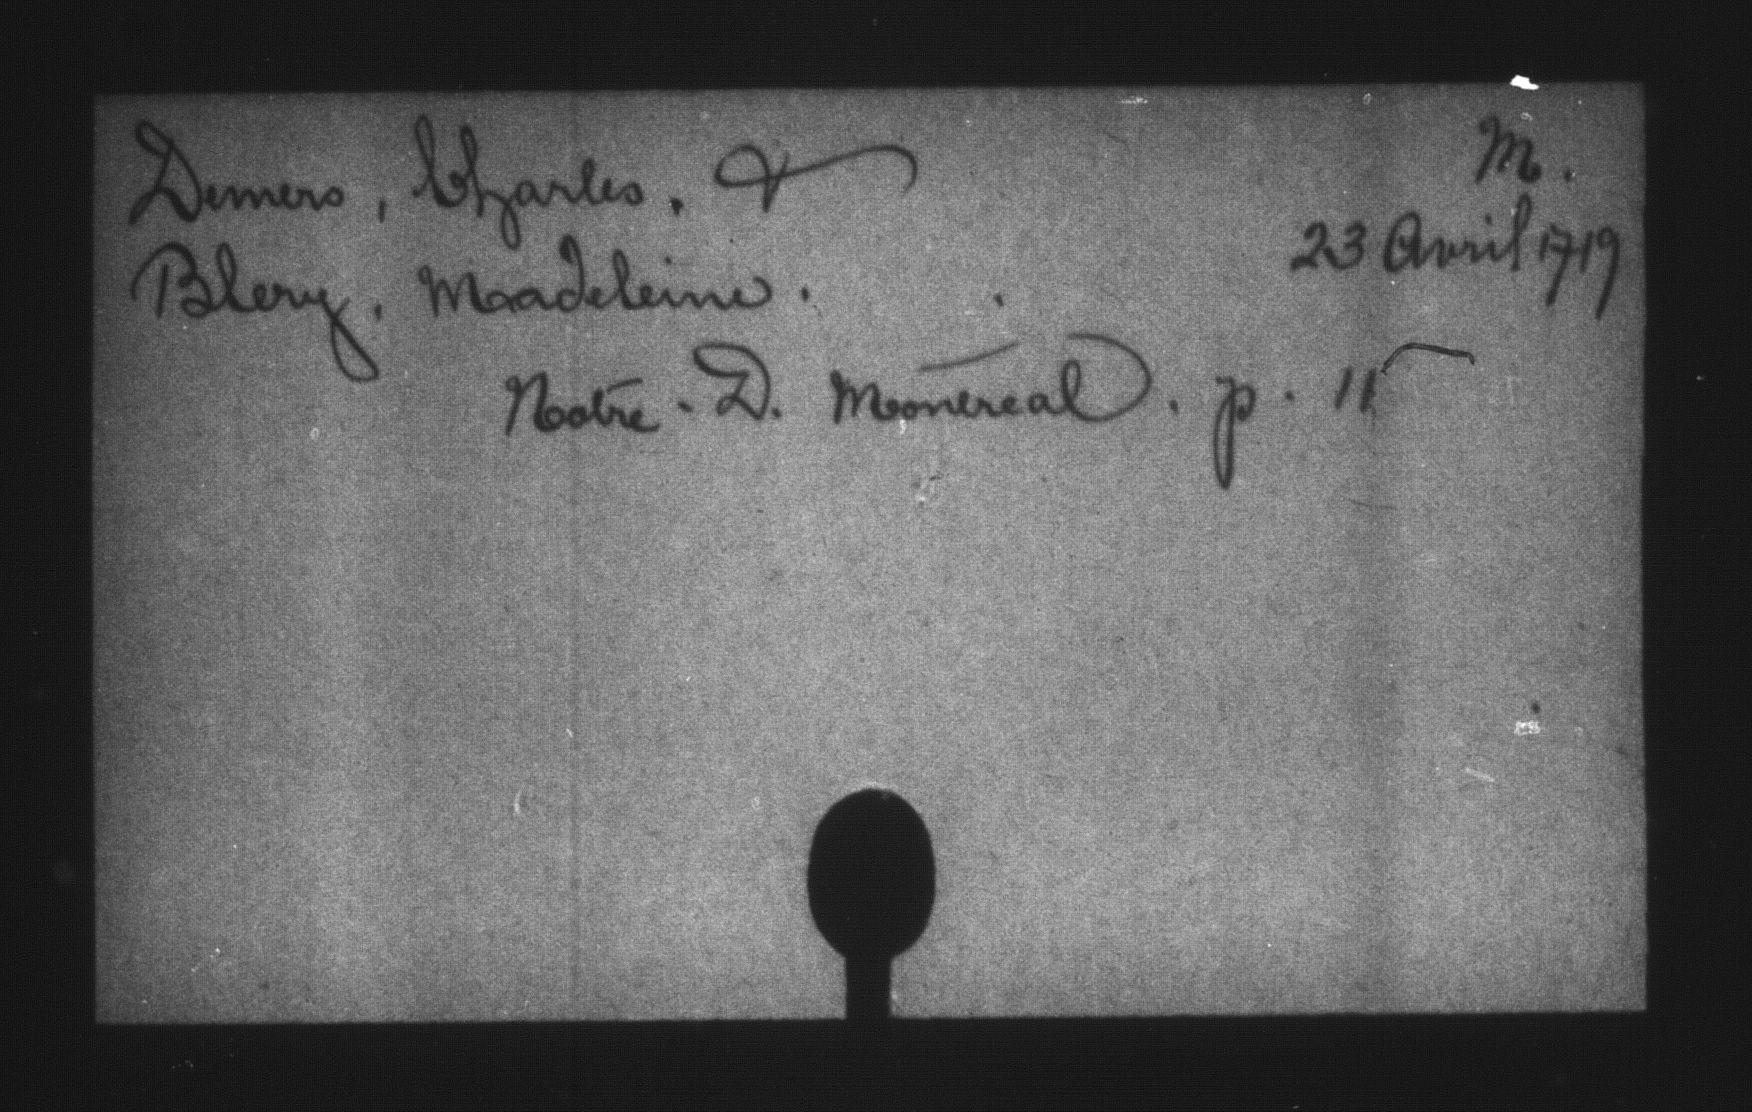 Demers, Charles. &
M.
23 Avril 1719
Blery, Madeleine.
Notre-D. Montreal. p. 11